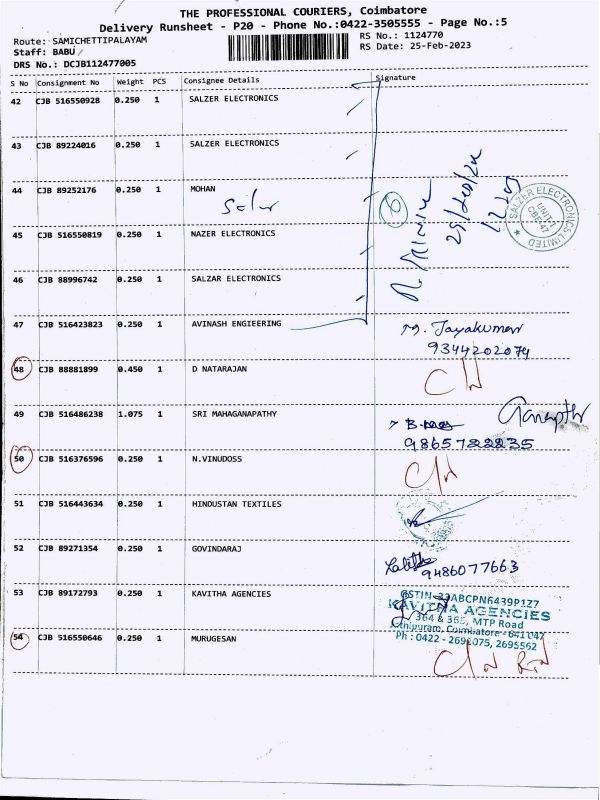 THE PROFESSIONAL COURIERS, Coimbatore
Delivery Runsheet - P20 - Phone No.:0422-3505555 - Page No.:5
Route: SAMICHETTIPALAYAM RS No.: 1124770
Staff: BABU RS Date: 25-Feb-2023
DRS No.: DCJB112477005
S No Consignment No Weight PCS Consignee Details Signature
42 CJB 516550928 0.250 1 SALZER ELECTRONICS
43 CJB 89224016 0.250 1 SALZER ELECTRONICS
44 CJB 89252176 0.250 1 MOHAN
SALZER ELECTRONICS LIMITED
UNIT-I
CBE-47
45 CJB 516550819 0.250 1 NAZER ELECTRONICS
46 CJB 88996742 0.250 1 SALZAR ELECTRONICS
47 CJB 516423823 0.250 1 AVINASH ENGIEERING
Jayakumar
9344202074
48 CJB 88881899 0.450 1 D NATARAJAN
49 CJB 516486238 1.075 1 SRI MAHAGANAPATHY
50 CJB 516376596 0.250 1 N.VINUDOSS
51 CJB 516443634 0.250 1 HINDUSTAN TEXTILES
52 CJB 89271354 0.250 1 GOVINDARAJ
9486077663
53 CJB 89172793 0.250 1 KAVITHA AGENCIES
GSTIN 33ABCPN6439P1Z7
KAVITHA AGENCIES
364 & 365, MTP Road
Coimbatore - 641 047
Ph : 0422 - 2692075, 2695562
54 CJB 516550646 0.250 1 MURUGESAN